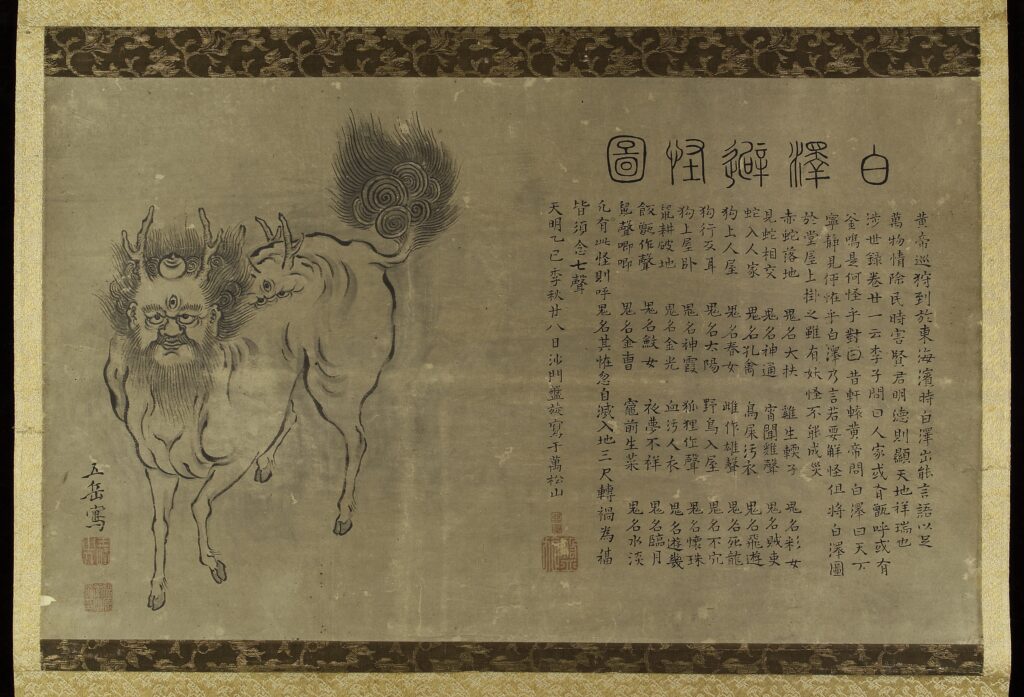 白澤避怪圖
黃帝巡狩到於東海濱時白澤出能言語以足
萬物情除民時害賢君明德則顯天地祥瑞也
涉世錄卷廿一云李子問曰人家或有甑呼或有
釜鳴是何怪乎對曰昔軒轅黃帝問白澤曰天下
寧靜見何恠乎白澤乃言若要解怪但將白澤圖
於堂屋上掛之雖有妖怪不能成災
赤蛇落地 鬼名大扶 雞生軟子 鬼名彩女
見蛇相交 鬼名神通 宵聞雞聲 鬼名賊吏
蛇入人家 鬼名孔禽 鳥屎污衣 鬼名飛遊
狗上人屋 鬼名春女 雌作雄聲 鬼名死龍
狗行反耳 鬼名大陽 野鳥入屋 鬼名不穴
狗上屋卧 鬼名神霞 狐狸作聲 鬼名懷珠
鼠耕破地 鬼名金光 血污人衣 鬼名遊幾
飯甑作聲 鬼名斂女 衣夢不祥 鬼名臨月
鼠聲唧唧 鬼名金曹 竈前生菜 鬼名水淡
凡有此怪則呼鬼名其恠忽自滅入地三尺轉禍為福
皆須念七聲
天明乙巳季秋廿八日沙門盤旋寫于萬松山
五岳寫